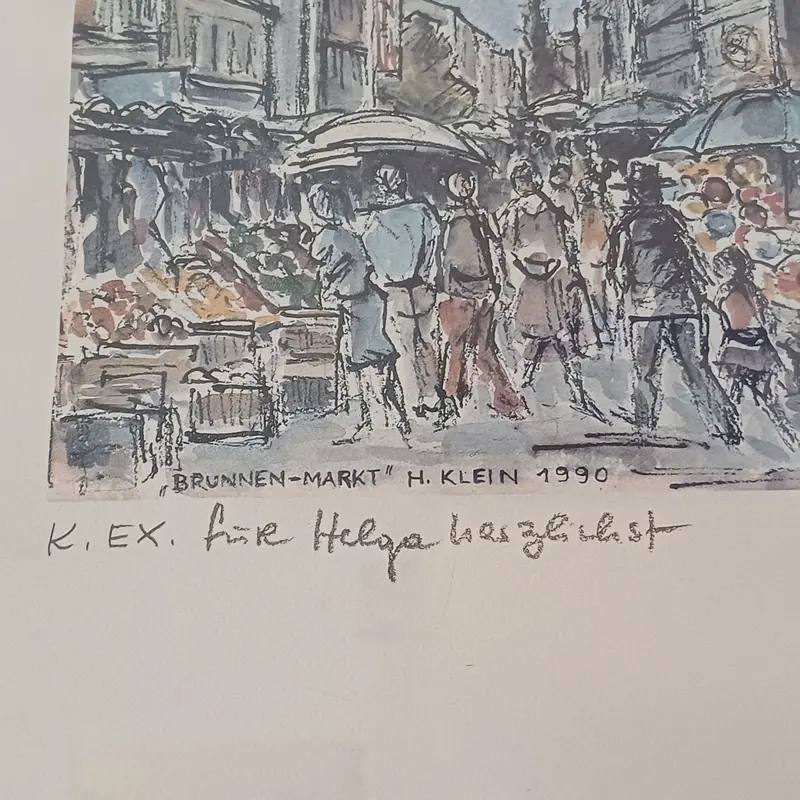 „BRUNNEN-MARKT" H. KLEIN 1990
K. EX. für Helga herzlichst